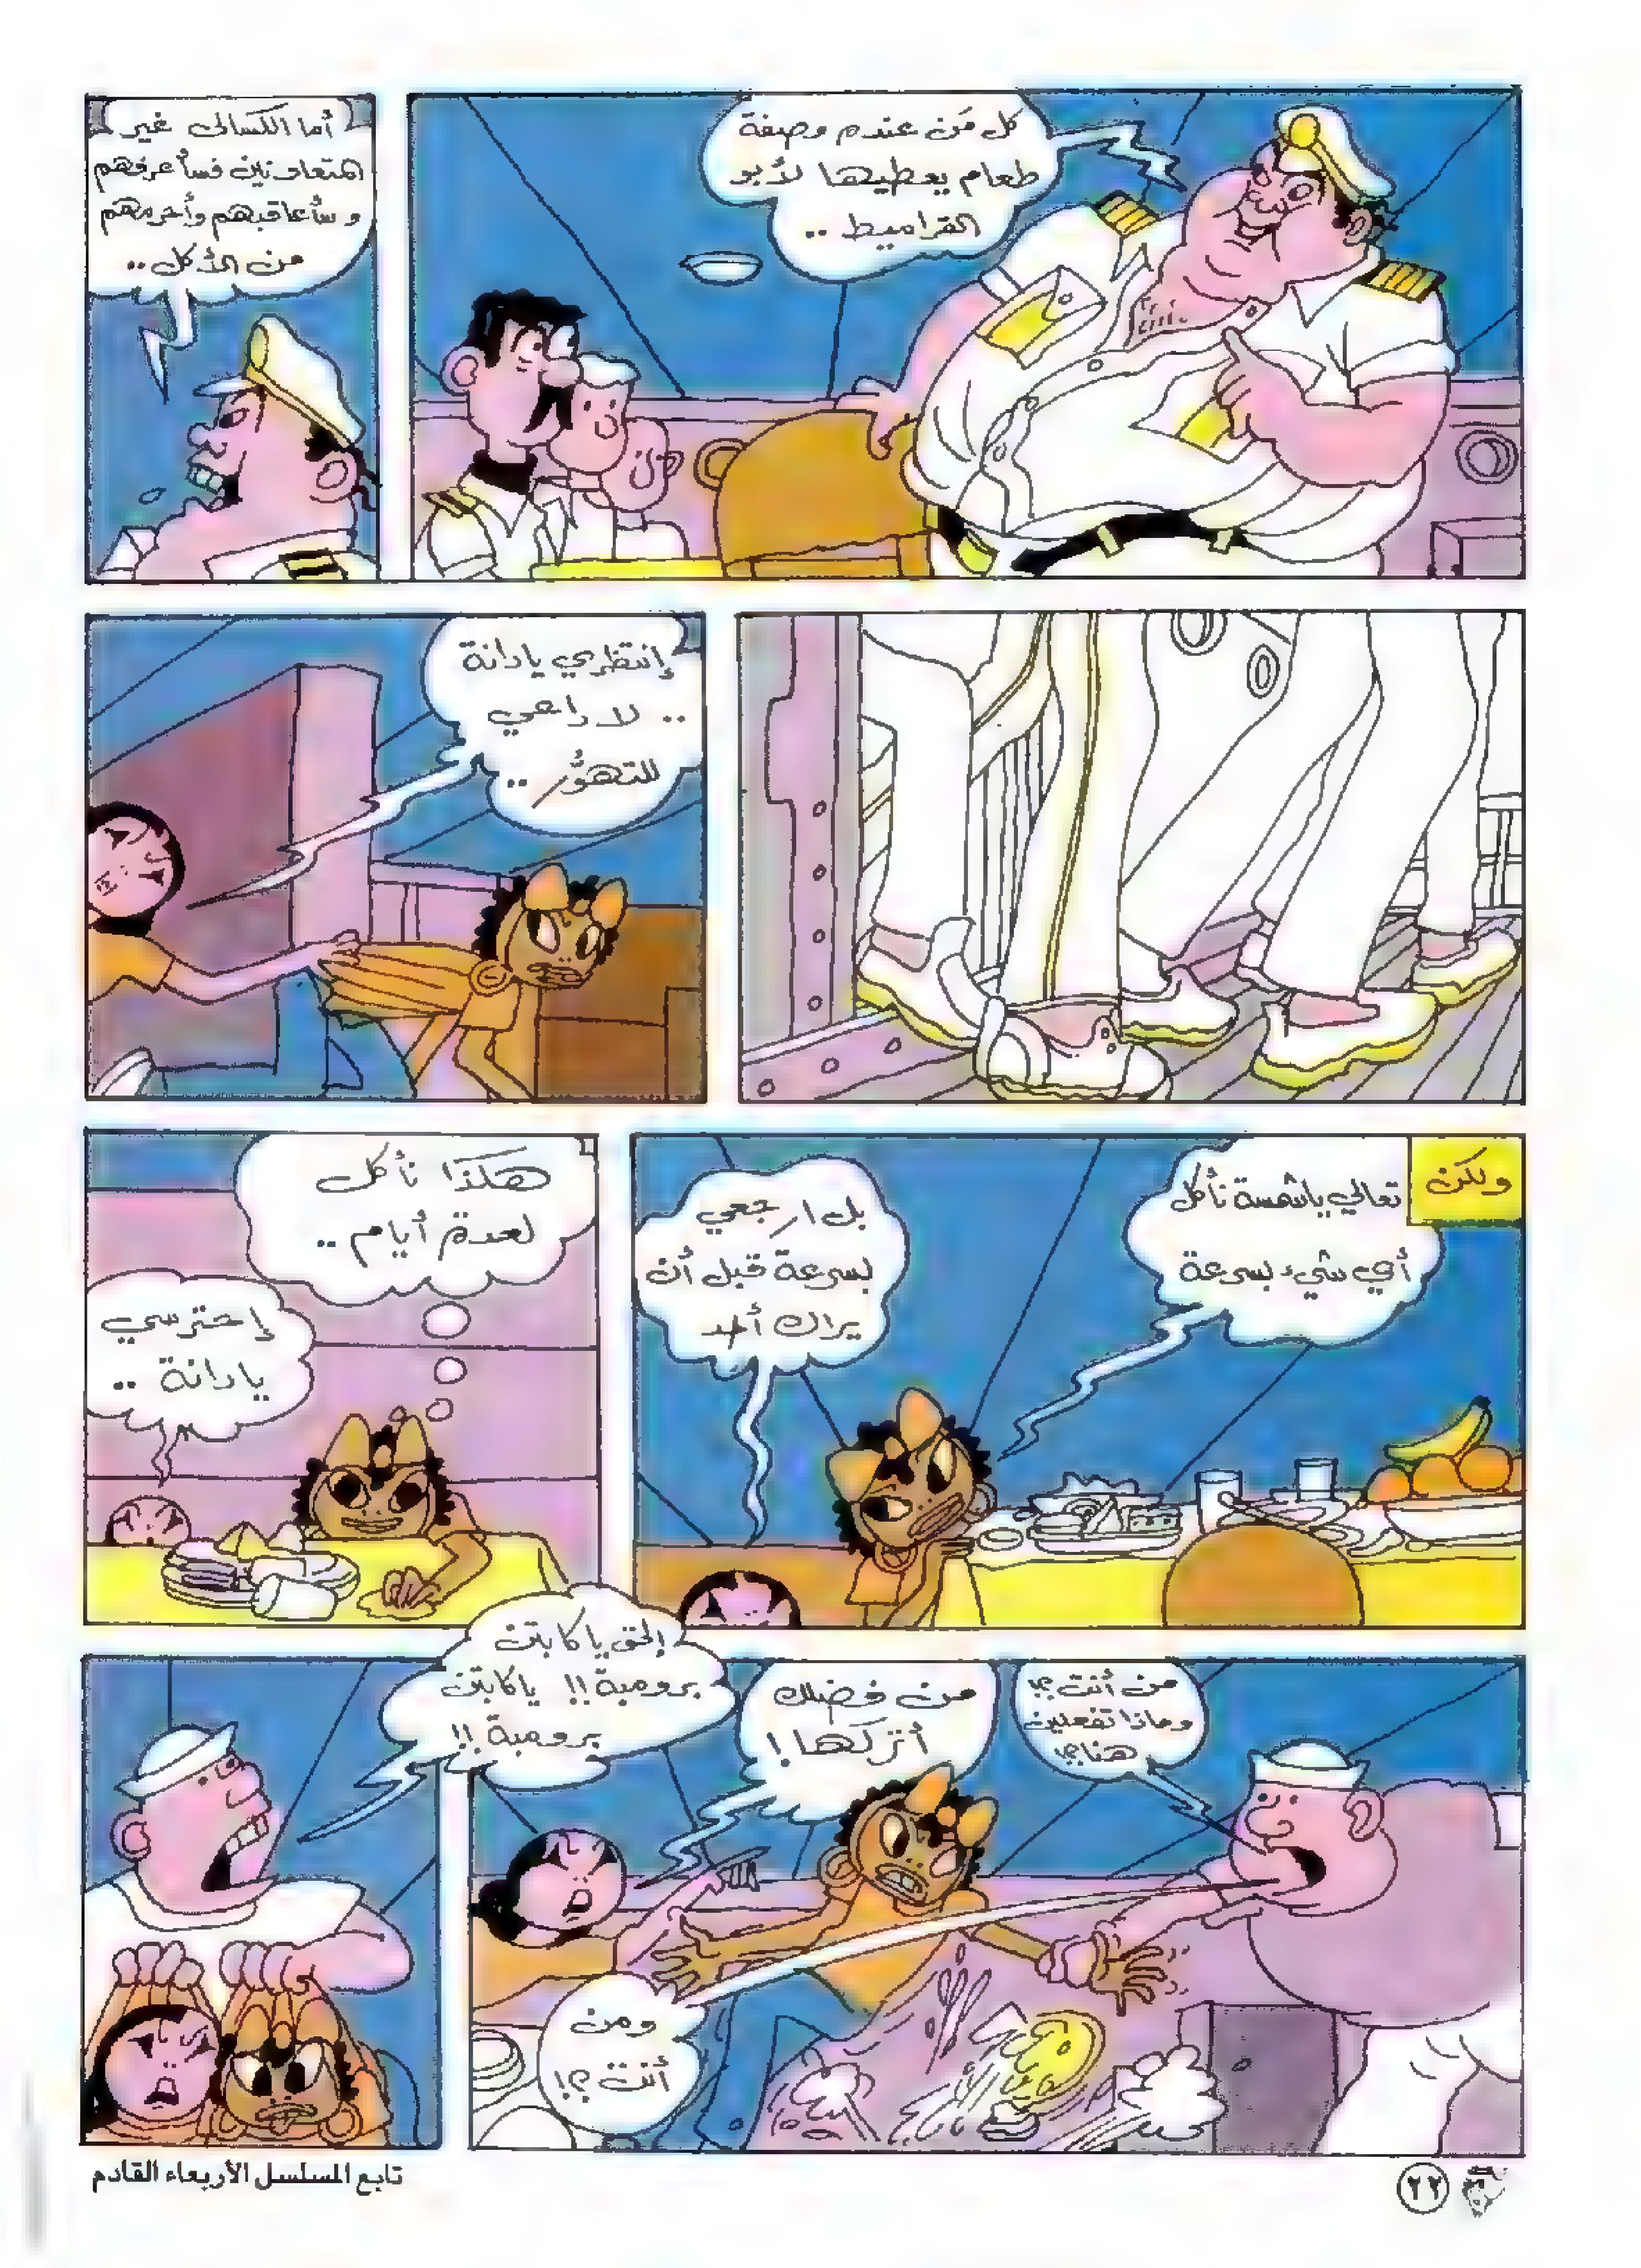 كل مَن عنده وصفة
طعام يعطيها لأبو
القراميط ..
أما الكسالى غير
المتعاونين فسأعرفهم
وسأعاقبهم وأحرمهم
من الأكل ..
إنتظري يا دانة
.. لا داعي
للتهوُّر ..
ولكن
تعالي ياشمسة نأكل
أي شيء بسرعة
بل ارجعي
بسرعة قبل أن
يراك أحد
هكذا نأكل
لعدة أيام ..
إحترسي
يادانة ..
من أنت ؟!
وماذا تفعلين
هنا ؟!
من فضلك
أتركها !
ومن
أنت ؟!
إلحق يا كابتن
برومبة !! ياكابتن
برومبة !!
تابع المسلسل الأربعاء القادم
٢٢